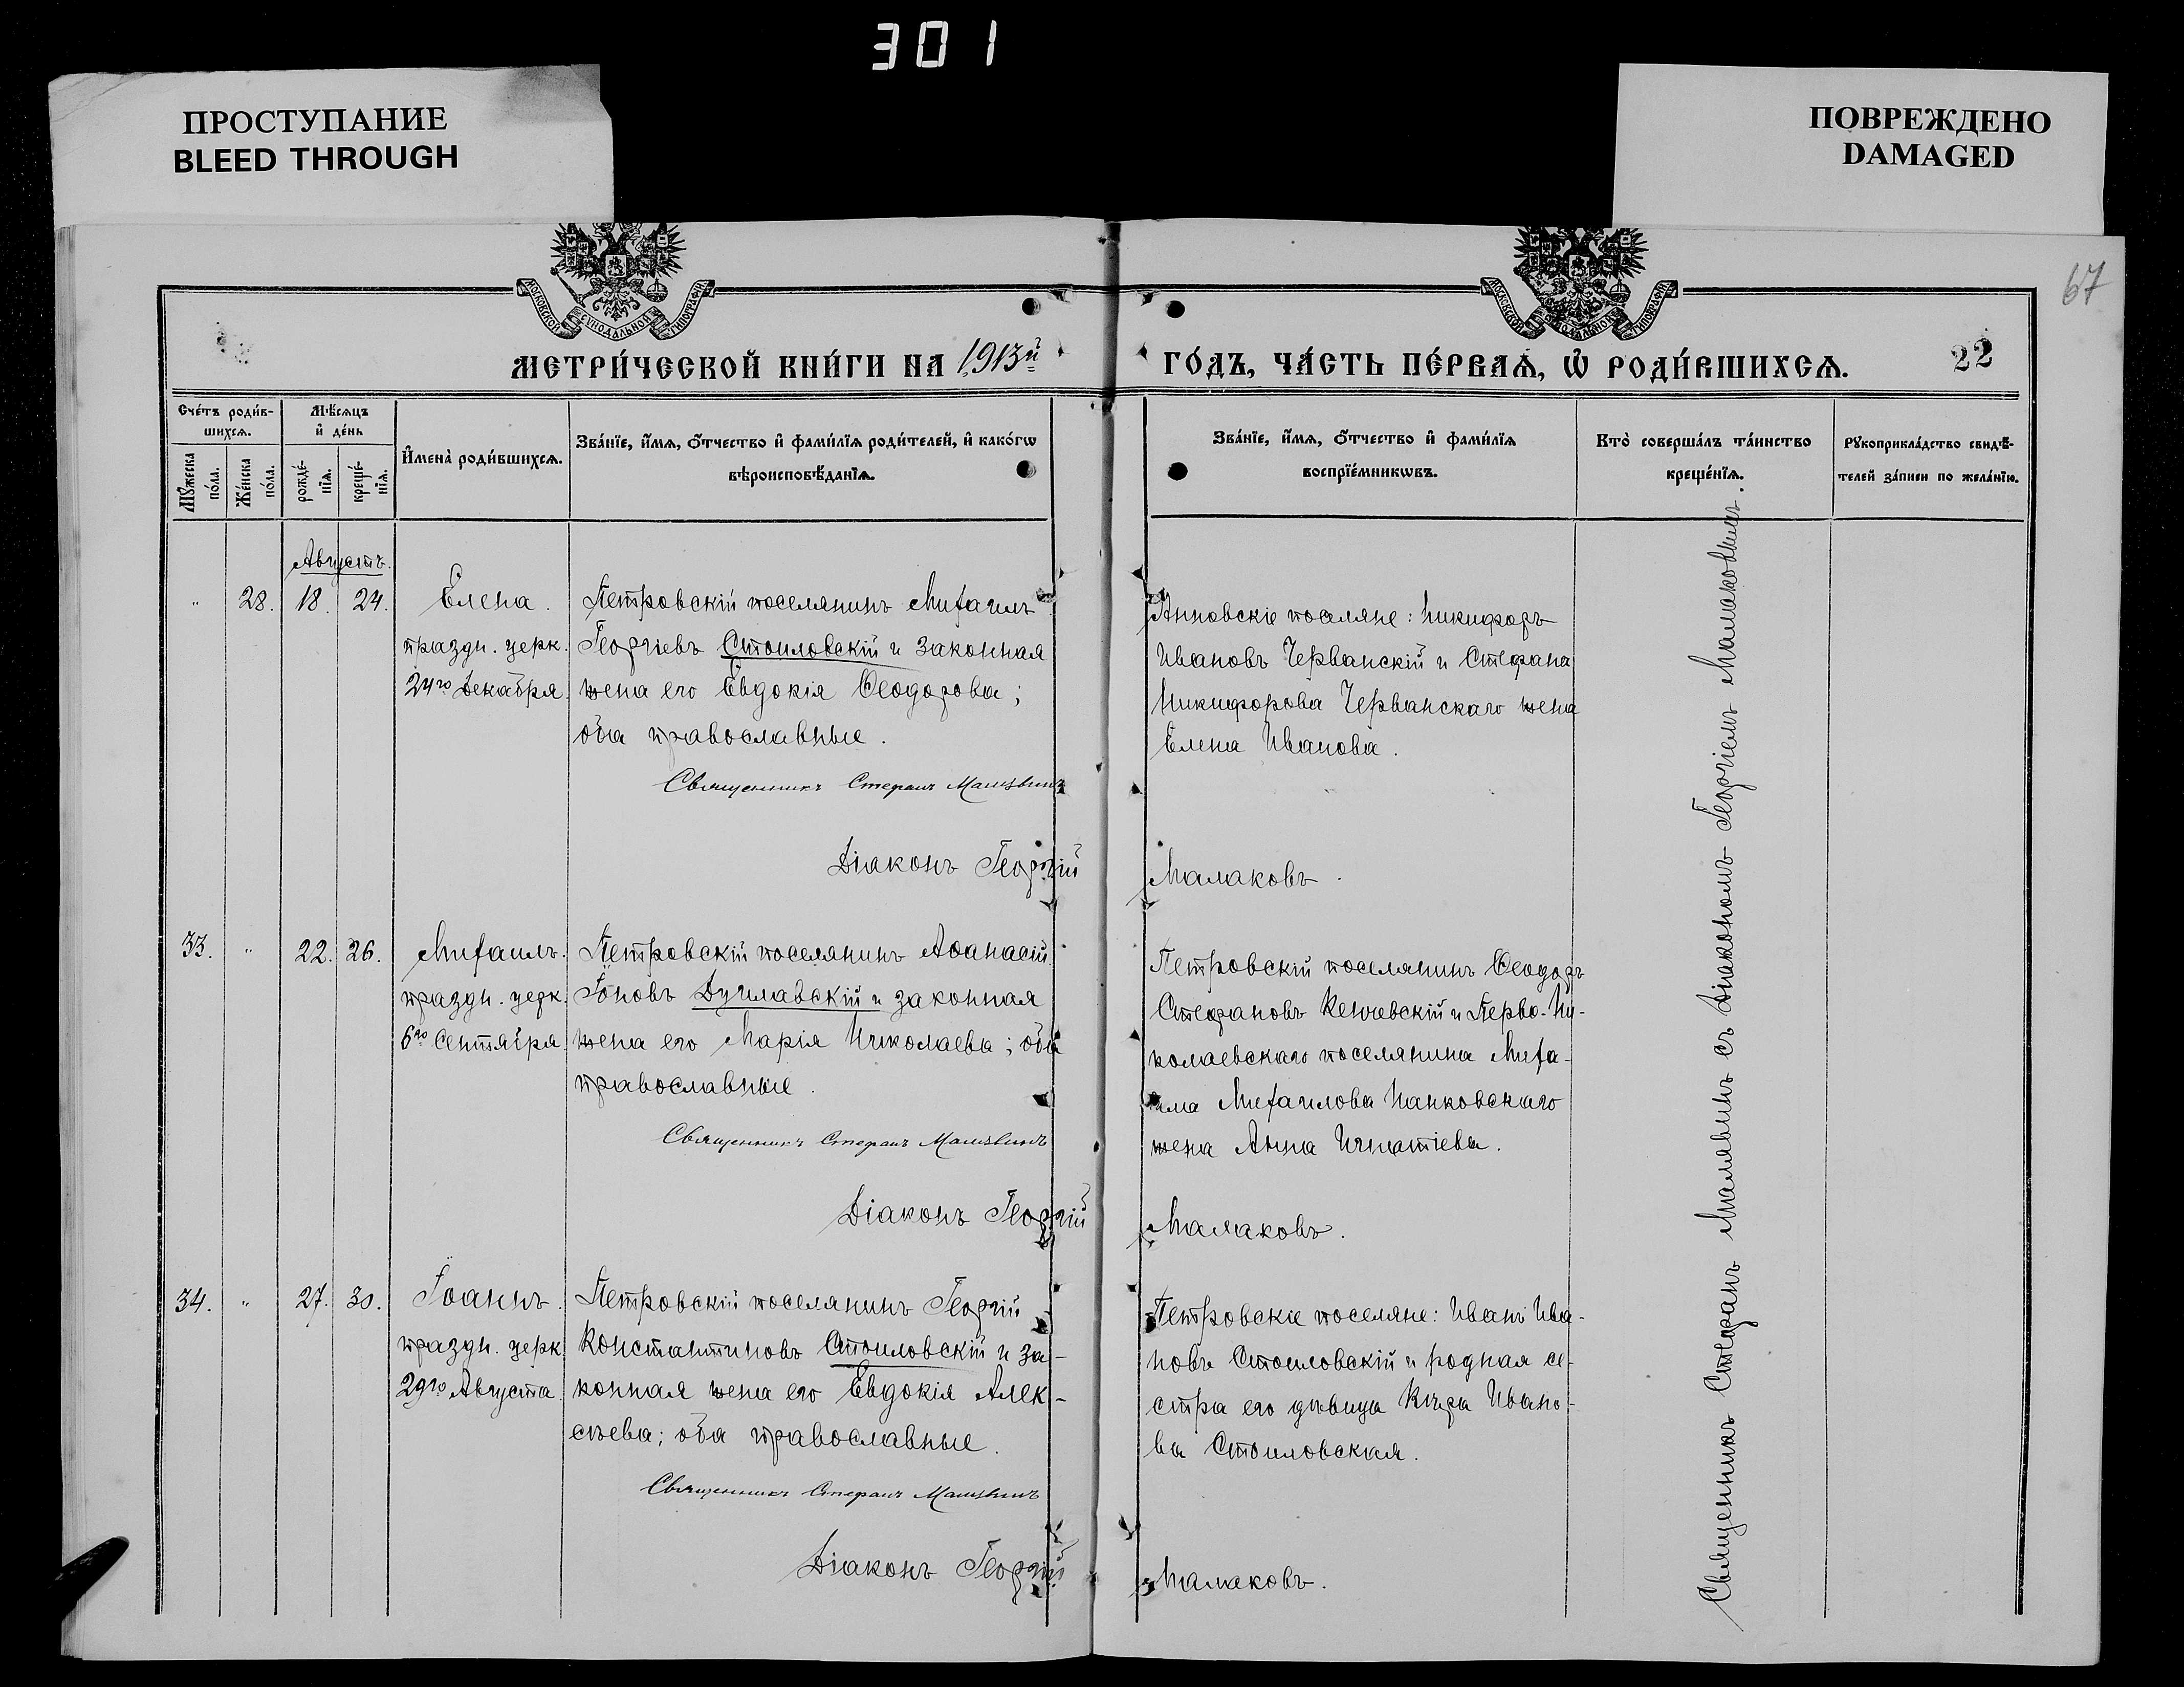 301
ПРОСТУПАНИЕ
BLEED THROUGH
ПОВРЕЖДЕНО
DAMAGED
67
МОСКОВСКОЙ СѴНОДАЛЬНОЙ ТИПОГРАФІИ
МОСКОВСКОЙ СѴНОДАЛЬНОЙ ТИПОГРАФІИ
МЕТРИ́ЧЕСКОЙ КНИ́ГИ НА 1913й
ГО́ДЪ, ЧА́СТЬ ПЕ́РВАѦ, Ѿ РОДИ́ВШИХСѦ.
22
Сче́тъ роди́в-
шихсѧ.
Мꙋ́жеска
по́ла.
Же́нска
по́ла.
Мѣ́сѧцъ
и҆ де́нь
рожде́-
нїѧ.
креще́-
нїѧ.
И҆мена̀ роди́вшихсѧ.
Зва́нїе, и҆́мѧ, ѻ҆́тчество и҆ фами́лїѧ роди́телей, и҆ како́гѡ
вѣроисповѣ́данїѧ.
Зва́нїе, и҆́мѧ, ѻ҆́тчество и҆ фами́лїѧ
воспрїе́мникѡвъ.
Кто̀ соверша́лъ та́инство
креще́нїѧ.
Рꙋкоприкла́дство свидѣ́-
телей за́писи по жела́нїю.
Августъ.
" 28. 18. 24.
Елена.
праздн. церк.
24го Декабря.
Петровскій поселянинъ Михаилъ
Георгіевъ Стоиловскій и законная
жена его Евдокія Ѳеодорова;
оба православные.
Священникъ Стефанъ Малявинъ
Діаконъ Георгій
Анновскіе поселяне: Никифоръ
Ивановъ Черванскій и Стефана
Никифорова Черванскаго жена
Елена Иванова.
Малаковъ.
33. " 22. 26.
Михаилъ.
праздн. церк.
6го Сентября.
Петровскій поселянинъ Аѳанасій
Іоновъ Дуилавскій и законная
жена его Марія Николаева; оба
православные.
Священникъ Стефанъ Малявинъ
Діаконъ Георгій
Петровскій поселянинъ Ѳеодоръ
Стефановъ Кенчевскій и Перво-Ни-
колаевскаго поселянина Миха-
ила Михаилова Панковскаго
жена Анна Игнатіева.
Малаковъ.
34. " 27. 30.
Іоаннъ.
праздн. церк.
29го Августа.
Петровскій поселянинъ Георгій
Константиновъ Стоиловскій и за-
конная жена его Евдокія Алек-
сѣева; оба православные.
Священникъ Стефанъ Малявинъ
Діаконъ Георгій
Петровскіе поселяне: Иванъ Ива-
новъ Стоиловскій и родная се-
стра его дѣвица Кира Ивано-
ва Стоиловская.
Малаковъ.
Священникъ Стефанъ Малявинъ съ Діакономъ Георгіемъ Малаковымъ.